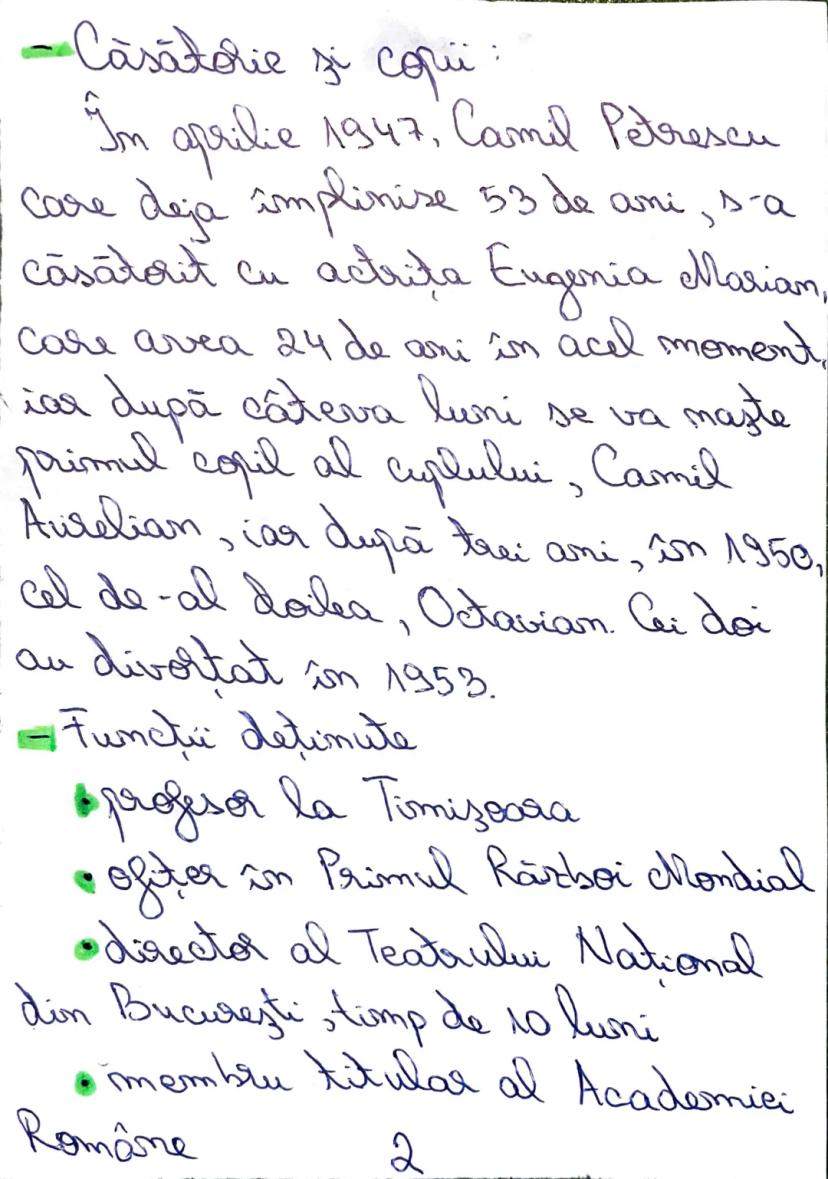 - Căsătorie și copii :
În aprilie 1947, Camil Petrescu
care deja împlinise 53 de ani, s-a
căsătorit cu actrița Eugenia Marian,
care avea 24 de ani în acel moment,
iar după câteva luni se va naște
primul copil al cuplului, Camil
Aurelian, iar după trei ani, în 1950,
cel de-al doilea, Octavian. Cei doi
au divorțat în 1953.
- Funcții deținute
• profesor la Timișoara
• ofițer în Primul Război Mondial
• director al Teatrului Național
din București, timp de 10 luni
• membru titular al Academiei
Române
2